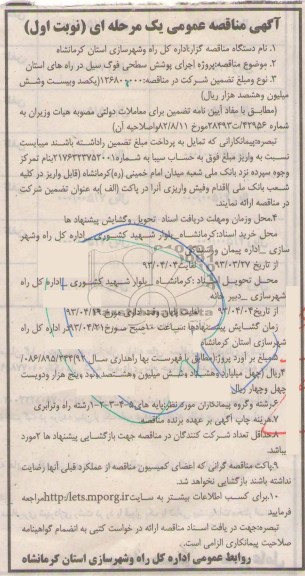 آگهی مناقصه عمومی یک مرحله ای (نوبت اول)
۱. نام دستگاه مناقصه گزار:اداره کل راه وشهرسازی استان کرمانشاه
۲. موضوع مناقصه:پروژه اجرای پوشش سطحی فوگ سیل در راه های استان
۳. نوع ومبلغ تضمین شرکت در مناقصه:۱۲۶۸۰۰۰۰۰(یکصد وبیست وشش
میلیون وهشصد هزار ریال)
(مطابق با مفاد آیین نامه تضمین برای معاملات دولتی مصوبه هیات وزیران به
شماره ۴۲۹۵۶/ت۲۸۴۹۳مورخ ۸۲/۸/۱۱واصلاحیه آن)
تبصره:پیمانکارانی که تمایل به پرداخت مبلغ تضمین راداشته باشند میبایست
نسبت به واریز مبلغ فوق به حساب سیبا به شماره۲۱۷۶۴۳۳۷۵۲۰۰۱بنام تمرکز
وجوه سپرده نزد بانک ملی شعبه میدان امام خمینی (ره)کرمانشاه (قابل واریز در کلیه
شعب بانک ملی )اقدام وفیش واریزی آنرا در پاکت (الف )به عنوان تضمین شرکت
در مناقصه ارائه نمایند.
۴.محل وزمان ومهلت دریافت اسناد تحویل وگشایش پیشنهاد ها
محل خرید اسناد:کرمانشاه_ بلوار شهید کشوری _اداره کل راه وشهر
سازی _اداره پیمان و
از تاریخ ۹۳/۰۳/۲۷ لغایت ۹۳/۰۴/۰۲
محل تحویل اسناد :کرمانشاه _ بلوار شهید کشوری _اداره کل راه
وشهرسازی _دبیر خانه
از تاریخ ۹۳/۰۴/۰۴ لغایت پایان وقت اداری مورخ ۹۳/۰۴/۱۹
زمان گشایش پیشنهادها :ساعت ۱۰صبح مورخ ۹۳/۰۴/۲۱در اداره کل راه
وشهرسازی استان کرمانشاه
۵.مبلغ بر آورد پروژه(مطابق بافهرست بها راهداری سال ۹۲)
ریال (چهل میلیارد وهشتاد وشش میلیون وهشتصد ونود وپنج هزار ودویست
چهل وچهار ریال
۶.رشته وگروه پیمانکاران مورد نظر:پایه های۵-۴-۳-۲-۱رشته راه وترابری
۷.هزینه چاپ آگهی بر عهده برنده مناقصه
۸.حداقل تعداد شرکت کنندگان در مناقصه جهت بازگشایی پیشنهاد ها ۲مورد
یباشد.
۹.پاکت مناقصه گرانی که اعضای کمیسیون مناقصه از عملکرد قبلی آنها رضایت
نداشته باشند بازگشایی نخواهد شد.
۱۰.برای کسب اطلاعات بیشتر به سایتhttp:/iets.mporg.irمراجعه
فرمایید
تبصره:جهت در یافت اسناد مناقصه ارائه در خواست کتبی به انضمام گواهینامه
صلاحیت پیمانکاری الزامی است..
روابط عمومی اداره کل راه وشهرسازی استان کرمانشاه